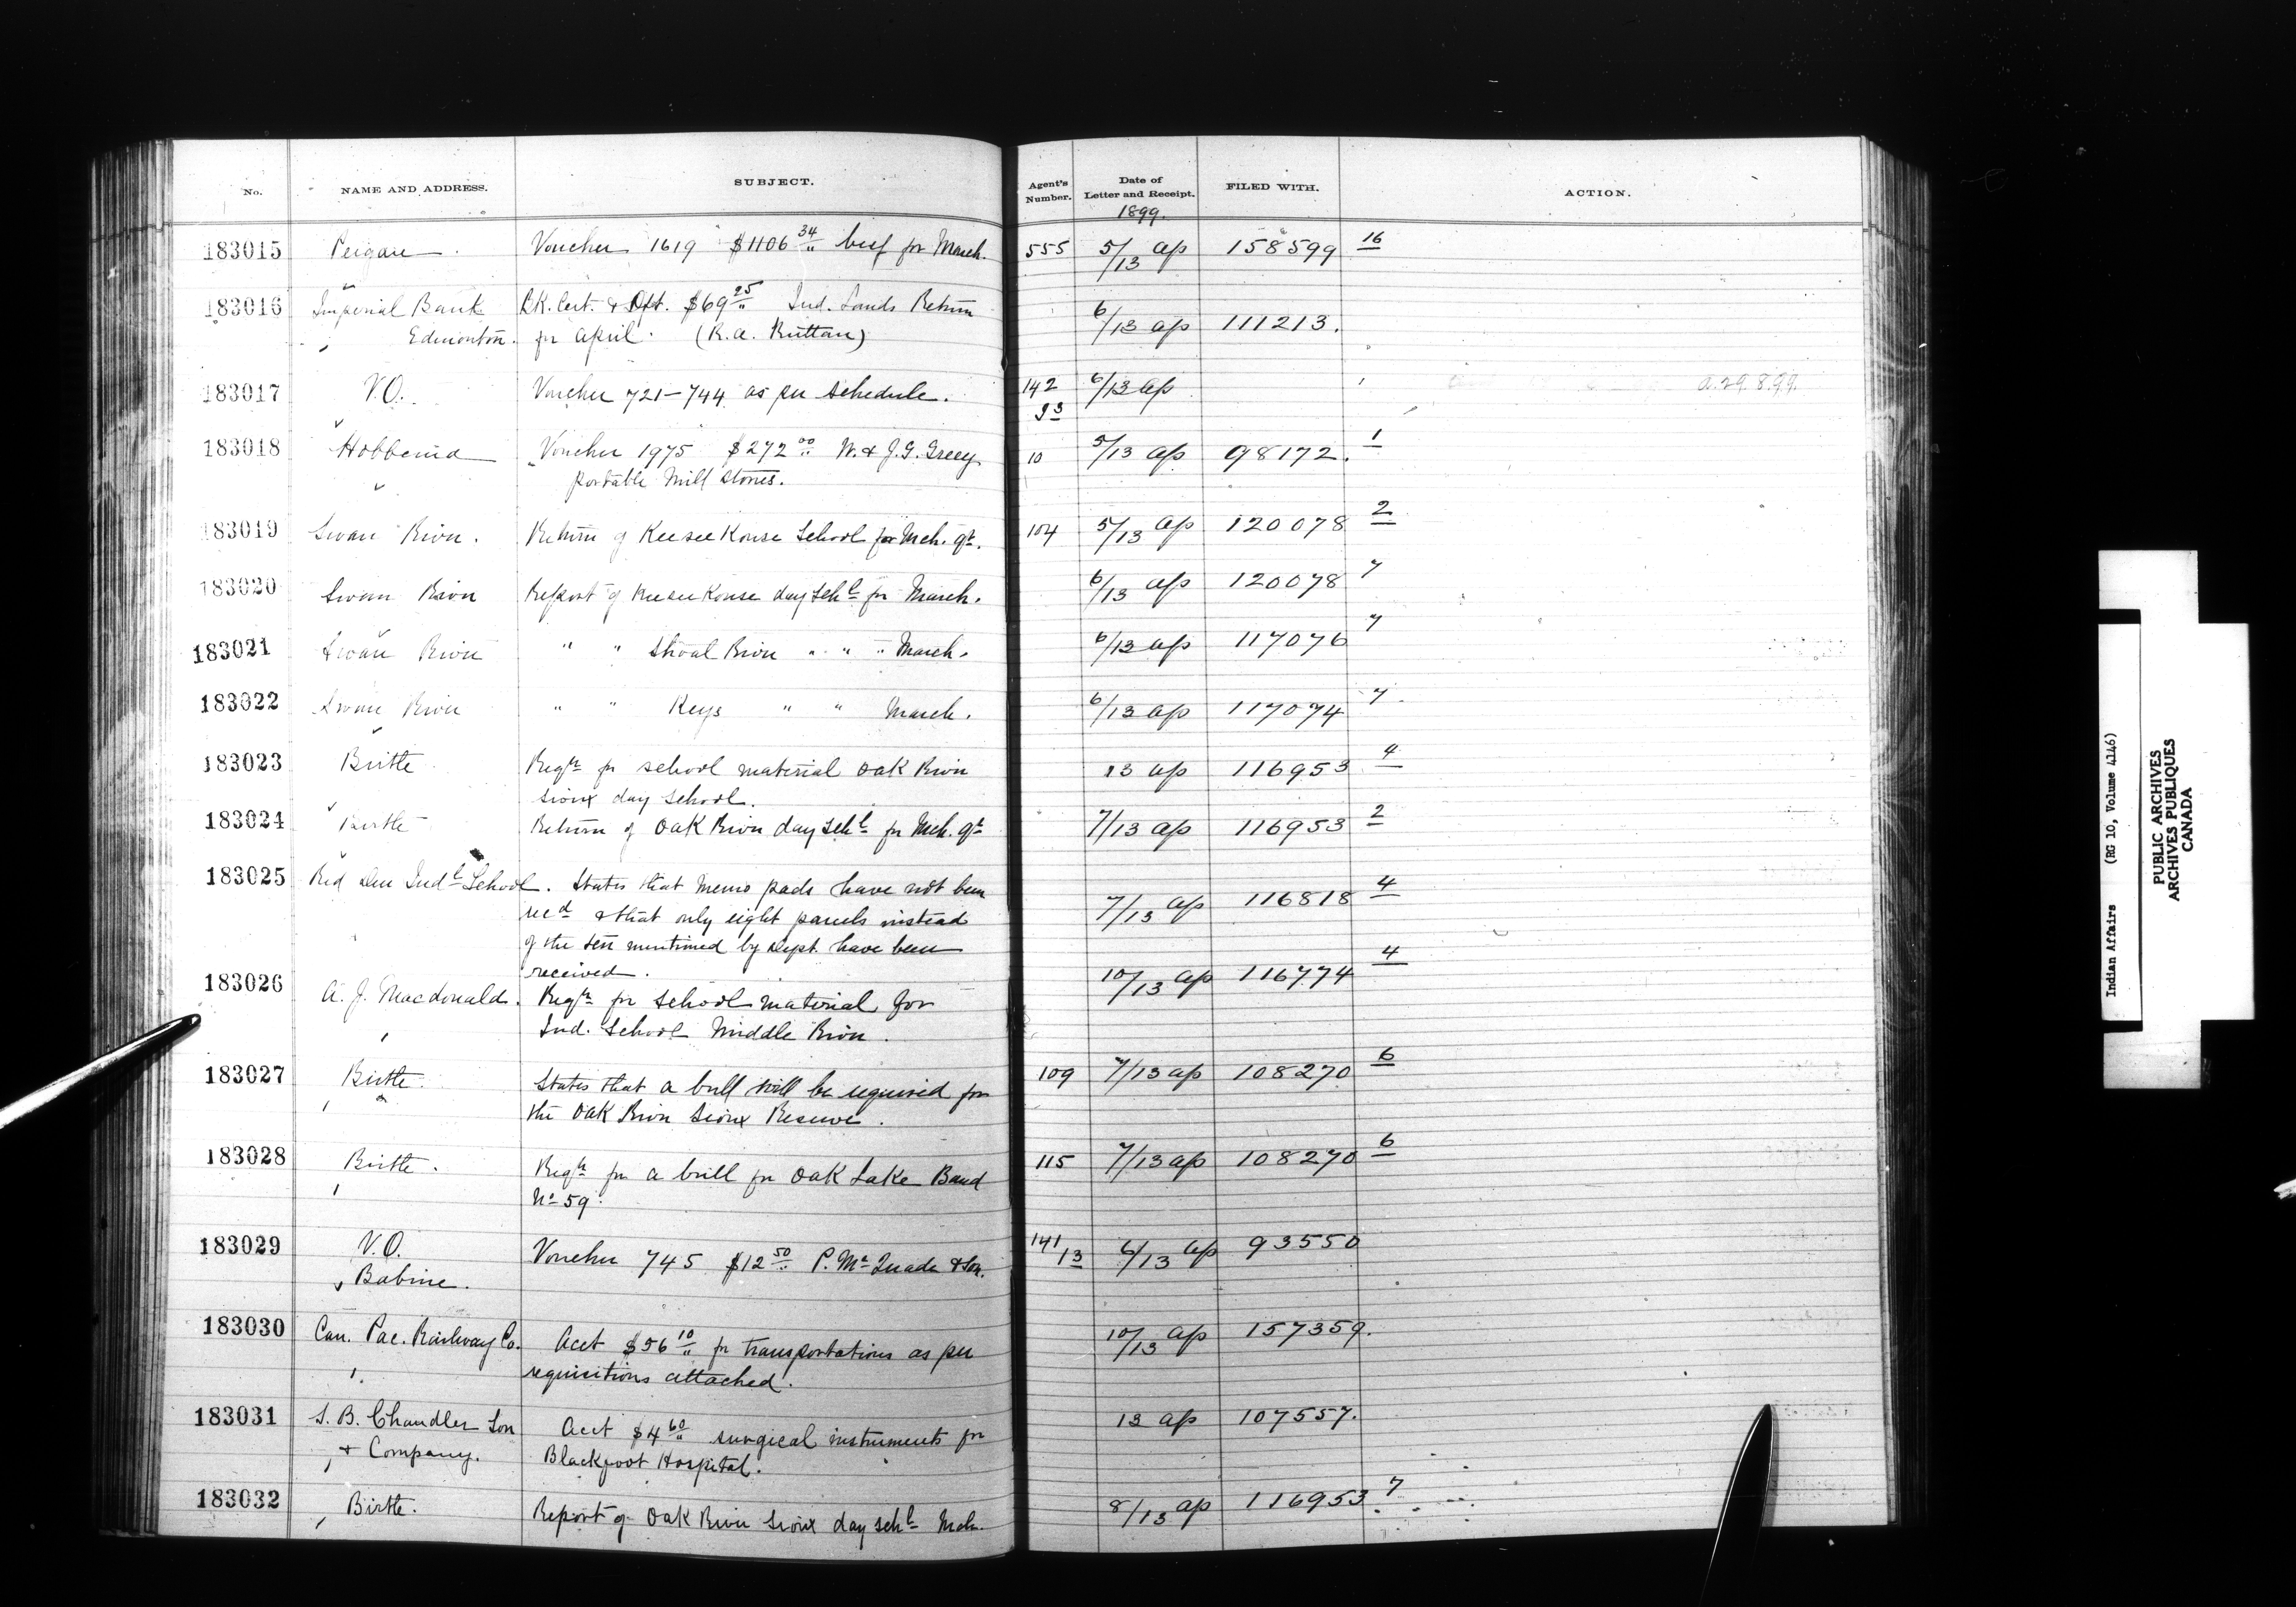 No. NAME AND ADDRESS. SUBJECT. Agent's Number. Date of Letter and Receipt. FILED WITH. ACTION.
1899.
183015 Peigan Voucher 1619 $1106 34 beef for March. 555 5/13 Ap 158599 16
183016 Imperial Bank Bk. Cert. & Dft. $69 25 Ind. Lands Return
Edmonton. for April. (R.A. Ruttan) 6/13 ap 111213.
183017 V.O. Voucher 721-744 as per schedule. 142 6/13 ap a.29.8.99.
93
183018 Hobbema Voucher 1975 $272 00 W. & J.G. Greey 10 5/13 ap 98172. 1
portable Mill Stones.
183019 Swan River. Return of Keeseekouse School for Mch. qr. 104 5/13 ap 120078 2
183020 Swan River Report of Keeseekouse day Schl for March. 6/13 ap 120078 7
183021 Swan River " " Shoal River " " " March. 6/13 ap 117076 7
183022 Swan River " " Keys " " March. 6/13 ap 117074 7
183023 Birtle Reqn for school material Oak River 13 ap 116953 4
Sioux day School.
183024 Birtle Return of Oak River day Schl for Mch. qr 7/13 ap 116953 2
183025 Red Deer Indl School. States that memo pads have not been
recd & that only eight parcels instead 7/13 ap 116818 4
of the ten mentioned by Dept. have been
received.
183026 A. J. Macdonald. Reqn for School material for 10/13 ap 116774 4
Ind. School Middle River.
183027 Birtle. States that a bull will be required for 109 7/13 ap 108270 6
the Oak River Sioux Reserve.
183028 Birtle. Reqn for a bull for Oak Lake Band 115 7/13 ap 108270 6
No 59.
183029 V.O. Voucher 745 $12 50 P. Mc Quade & Son. 141/13 6/13 ap 93550
Babine.
183030 Can. Pac. Railway Co. Acct $56 10 for transportations as per 10/13 ap 157359.
requisitions attached.
183031 S. B. Chandler Son Acct $4 60 surgical instruments for 13 ap 107557.
& Company. Blackfoot Hospital.
183032 Birtle. Report of Oak River Sioux day Schl Mch. 8/13 ap 116953 7
Indian Affairs (RG 10, Volume 4146)
PUBLIC ARCHIVES
ARCHIVES PUBLIQUES
CANADA